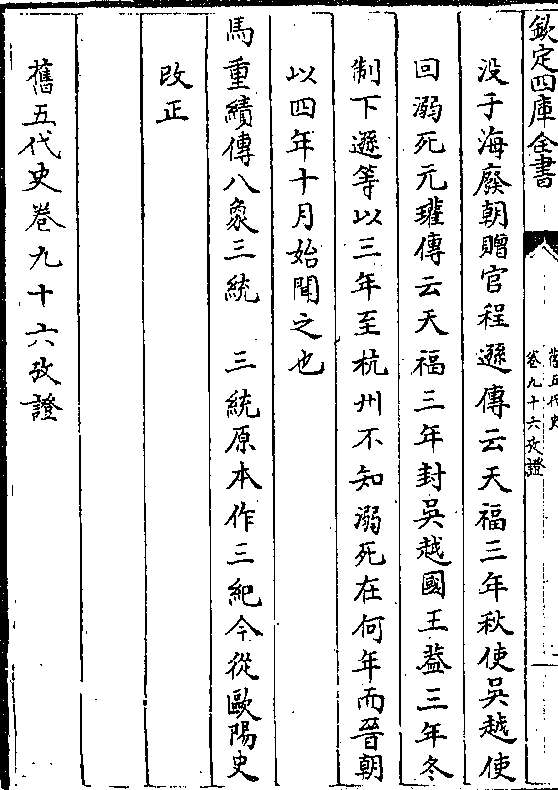 欽定四庫全書
舊五代史
卷九十六攷證
没于海廢朝贈官程遜傳云天福三年秋使吳越使
回溺死元瓘傳云天福三年封吳越國王葢三年冬
制下遜等以三年至杭州不知溺死在何年而晉朝
以四年十月始聞之也
馬重績傳八象三統　三統原本作三紀今從歐陽史
改正
舊五代史卷九十六攷證